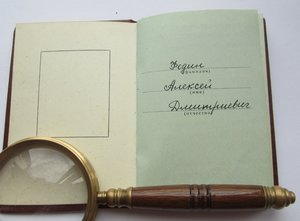 Юдин
(фамилия)
Алексей
(имя)
Дмитриевич
(отчество)